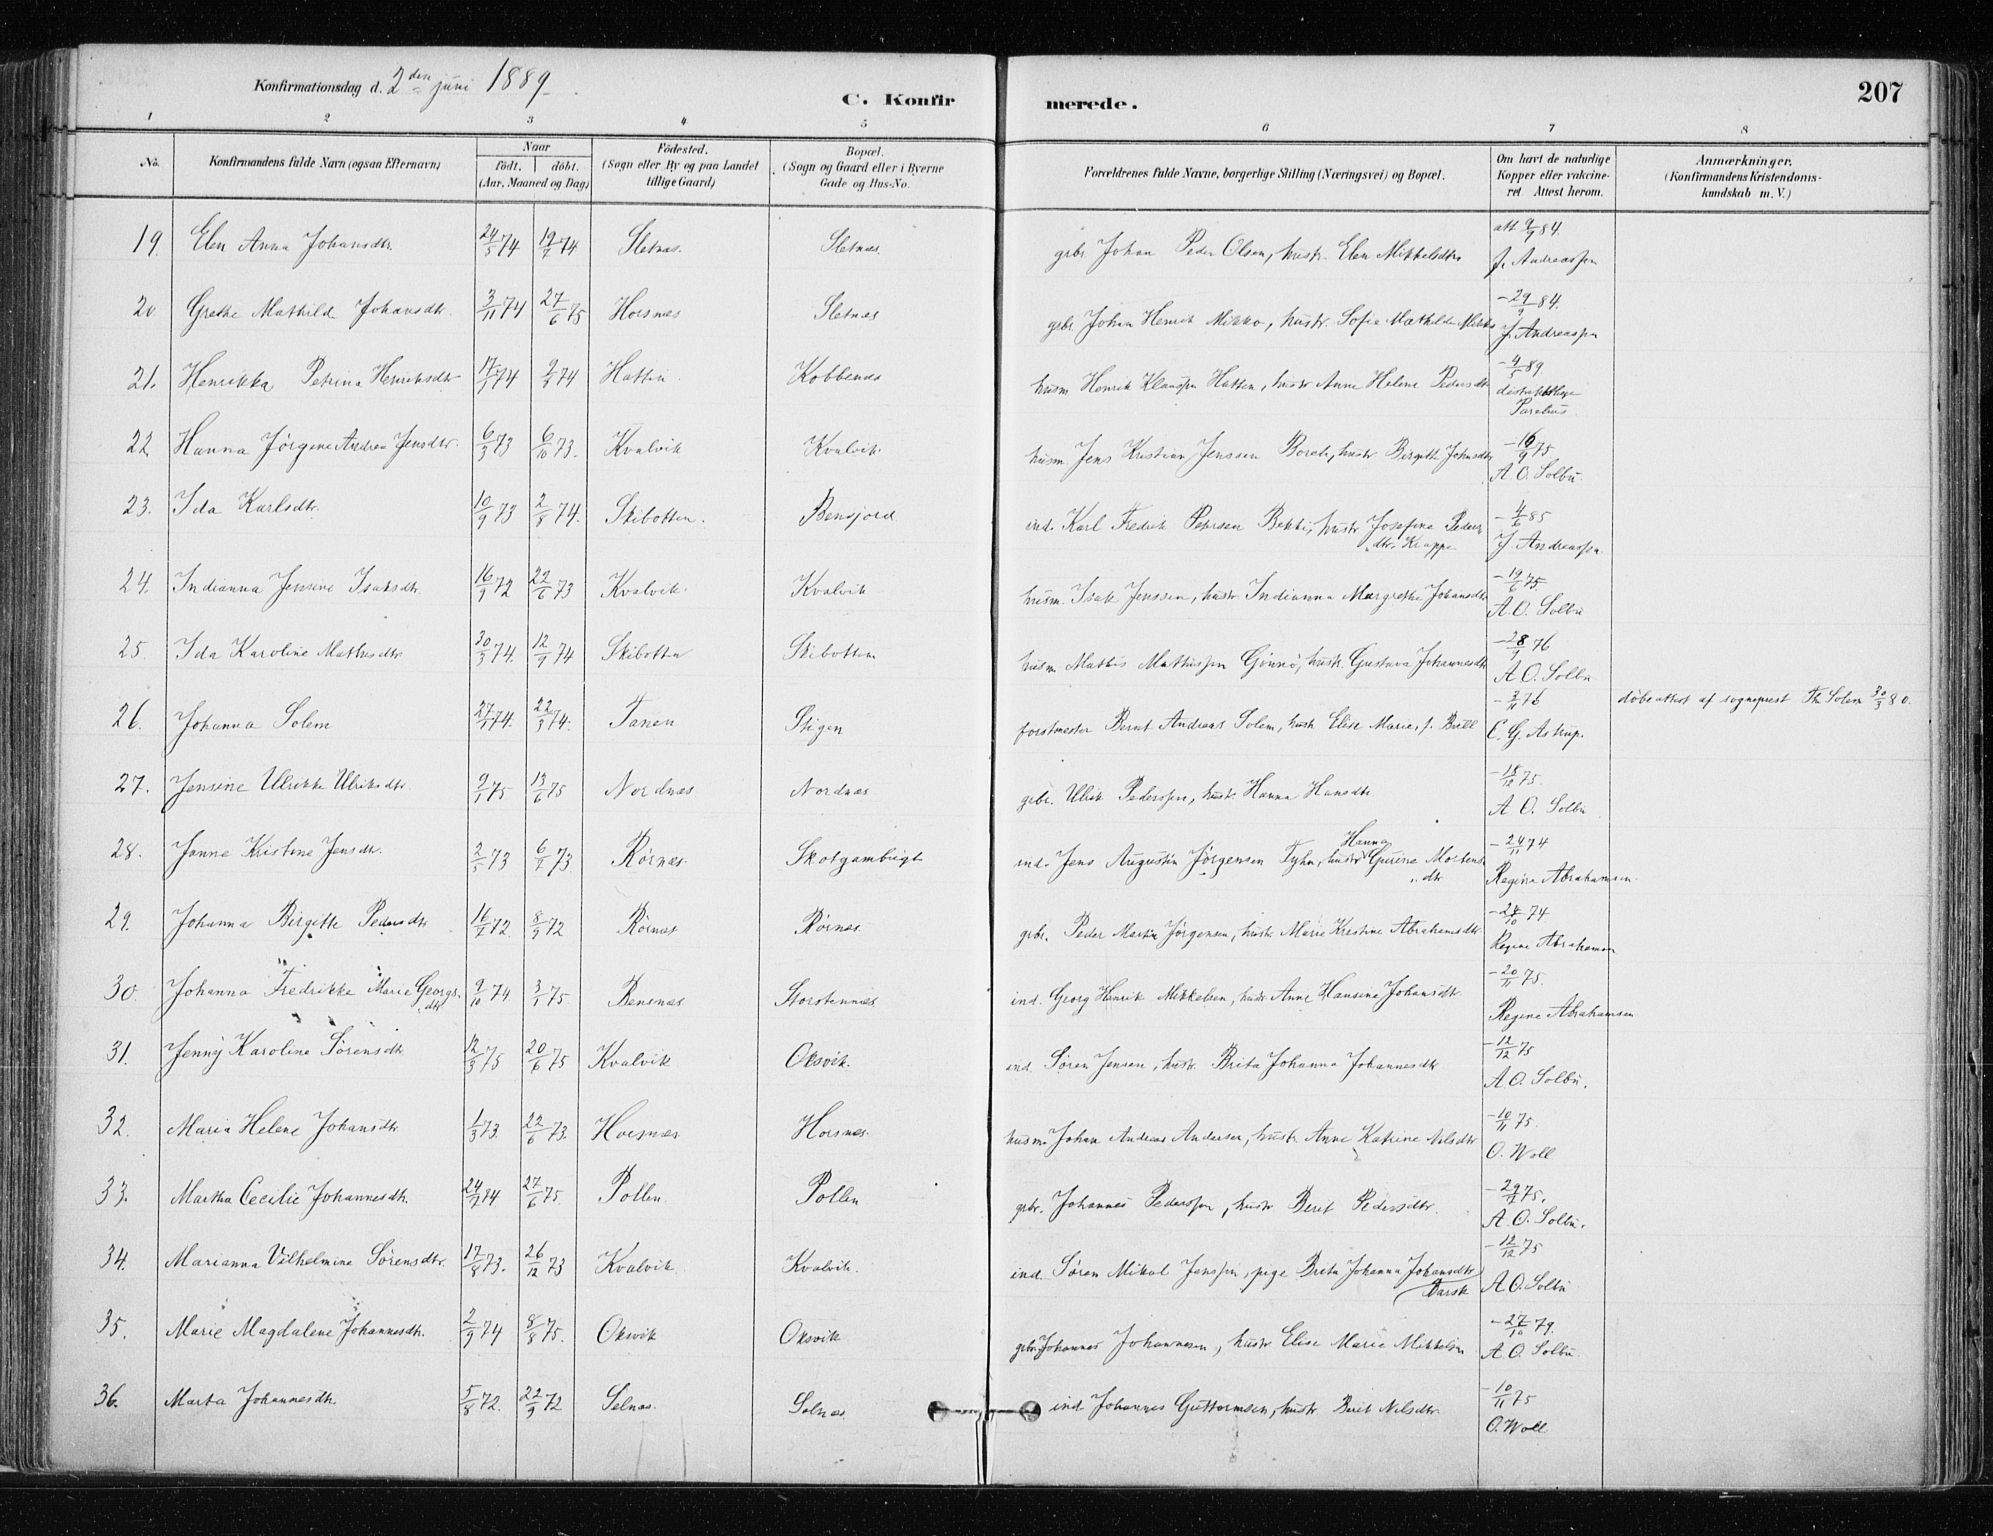 Konfirmationsdag d. 2den juni 1889.
C. Konfirmerede.
207
1 2 3 4 5 6 7 8
No.
Konfirmandens fulde Navn (ogsaa Efternavn)
Naar
födt. döbt.
(Aar, Maaned og Dag)
Födested.
(Sogn eller By og paa Landet
tillige Gaard)
Bopæl.
(Sogn og Gaard eller i Byerne
Gade og Hus-No.
Forældrenes fulde Navne, borgerlige Stilling (Næringsvei) og Bopæl.
Om havt de naturlige
Kopper eller vakcine-
ret Attest herom.
Anmærkninger.
(Konfirmandens Kristendoms-
kundskab m. V.)
19. Elen Anna Johansdtr. 24/5 74 19/7 74 Sletnæs. Sletnæs. grbr Johan Peder Olsen, hustr. Elen Mikkelsdtr att 9/9 84. J. Andreassen
20 Grethe Mathilde Johansdtr. 3/11 74 27/6 75 Horsnæs Sletnæs grbr. Johan Henrik Mikko, hustr. Sofie Mathilde -29/9 84. J. Andreassen
21. Henrikka Petrina Henriksdtr 74 74 Hatten. Kobbenæs husm. Henrik Klaussen Hatten, hustr Anne Helene Pedersdtr -4/5 89.
22 Hanna Jørgine Andrea Jensdtr. 6/3 73 6/10 73. Kvalvik Kvalvik. husm. Jens Kristian Jenssen Borch, hustr Birgitte Johnsdtr -16/9 75 A. O. Solbu.
23. Ida Karlsdtr. 10/9 73 2/8 74. Skibotten. Bensjord. ind. Karl Fredrik Petersen Bekki, hustr Josefine Peders
dtr. Knappe -4/6 85 J. Andreassen
24. Indianna Jensine Isaksdtr. 16/9 72 22/6 73 Kvalvik. Kvalvik husm. Isak Jenssen, hustr Indianna Margrethe Johansdtr -19/6 75. A. O. Solbu
25. Ida Karoline Mathisdtr 30/3 74. 12/9 74 Skibotten Skibotten husm. Mathis Mathissen Ginno, hustr. Gustava Johannesdtr -28/9 76 A O. Solbu
26. Johanna Solem 27/1 74. 22/3 74. Tanen Stigen forstmester Bernt Andreas Solem, hustr Elise Marie, f. Bull -3/11 76 C. G. Astrup. döbeattest af sognepræst Th. Solem 30/3 80.
27. Jensine Ulrikke Ulriksdtr. 9/1 75 13/6 75 Nordnæs Nordnæs grbr. Ulrik Pederssen, hustr. Hanna Hansdtr -18/12 75. A O. Solbu
28. Janne Kristine Jensdtr. 2/5 73 6/7 73. Rörnæs. Skotgambugt ind. Jens Augustin Jörgensen Tyhn, hustr Hanna Gurine Mortens
dtr -24/11 74 Regine Abrahamsen.
29. Johanna Birgitte Pedersdtr 16/7 72. 8/9 72 Rörnæs Rörnæs. grbr. Peder Martin Jörgensen, hustr Marie Kristine Abrahamsdtr -24/10 74 Regine Abrahamsen
30. Johanna Fredrikke Marie Georgs.
dtr 9/10 74. 3/1 75 Benesnæs Storstennæs ind. Georg Henrik Mikkelsen, hustr Anne Hansine Johansdtr. -20/11 75. Regine Abrahamsen
31. Jenny Karoline Sörensdtr 12/3 75 20/6 75 Kvalvik Oksvik. ind. Sören Jensen, hustr. Brita Johanna Johannesdtr -12/12 75 A O. Solbu.
32. Maria Helene Johansdtr. 1/3 73. 22/6 73. Horsnæs. Horsnæs. husm. Johan Andreas Andersen, hustr. Anne Katrine Nilsdtr -10/11 75. O. Woll
33. Martha Cecilie Johannesdtr. 24/9 74 27/6 75. Pollen. Pollen grbr. Johannes Pederssen, hustr Berit Pedersdtr. -29/12 75. A. O. Solbu.
34. Marianna Vilhelmine Sörensdtr. 17/8 73. 26/12 73 Kvalvik. Kvalvik. ind. Sören Mikal Janssen, pige Brita Johanna Johansdtr
Barsk -12/12 75 A O. Solbu
35. Marie Magdalene Johannesdtr. 2/9 74 8/8 75. Oksvik Oksvik grbr. Johannes Johannesen, hustr Elise Marie Mikkelsen -27/10 79. A O. Solbu.
36. Marta Johannesdtr. 5/8 72. 22/9 72 Selnæs. Selnæs. ind Johannes Guttormsen, hustr Berit Nilsdtr. -10/11 75 O. Woll